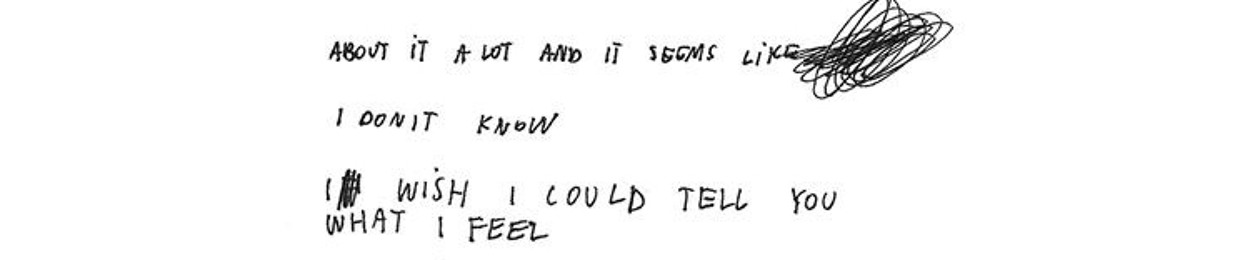 ABOUT IT A LOT AND IT SEEMS LIKE
I DON'T KNOW
I WISH I COULD TELL YOU
WHAT I FEEL